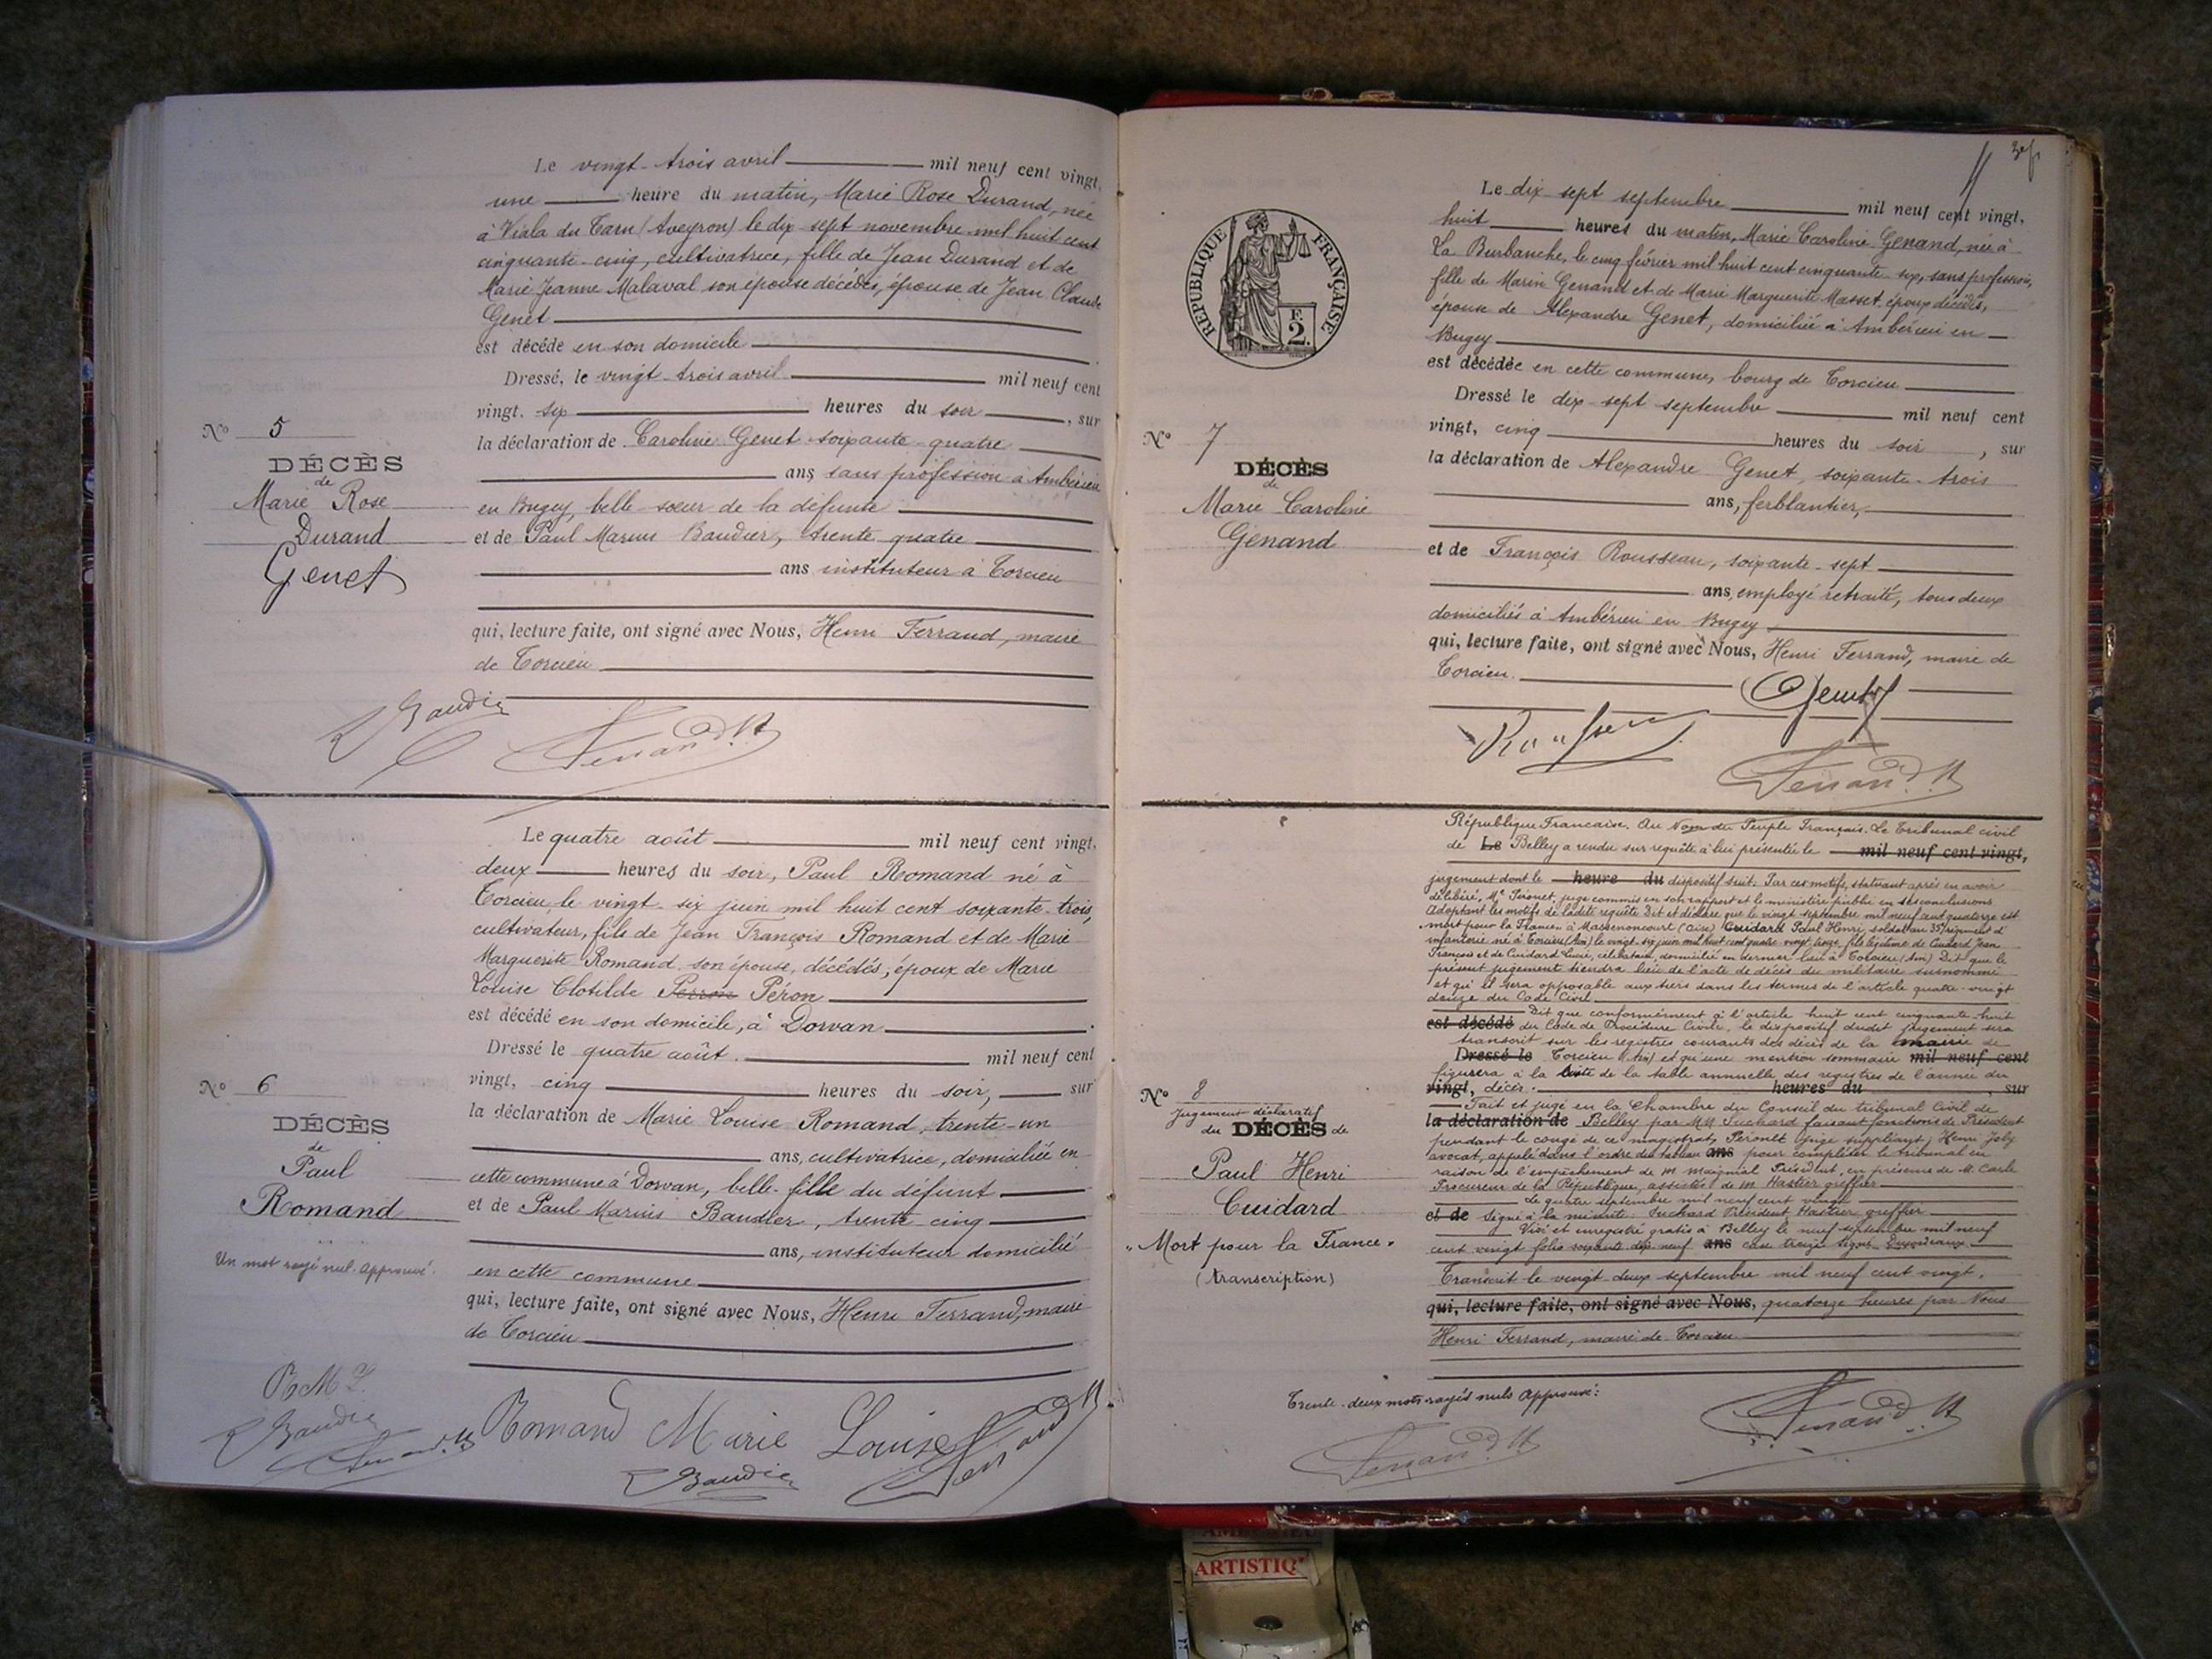 Le vingt-trois avril mil neuf cent vingt,
une heure du matin, Marie Rose Durand, née
à Viala du Tarn (Aveyron) le dix sept novembre mil huit cent
cinquante-cinq, cultivatrice, fille de Jean Durand et de
Marie Jeanne Malaval son épouse décédés, épouse de Jean Claude
Genet
est décédé en son domicile
Dressé, le vingt-trois avril mil neuf cent
vingt. six heures du soir, sur
la déclaration de Caroline Genet soixante-quatre
ans sans profession à Ambérieu
en Bugey, belle-sœur de la défunte
et de Paul Marius Baudier, trente quatre
ans instituteur à Torcieu
qui, lecture faite, ont signé avec Nous, Henri Ferrand, maire
de Torcieu
Baudier Ferrand. H
N° 5
DÉCÈS
de
Marie Rose
Durand
Genet
Le quatre août mil neuf cent vingt,
deux heures du soir, Paul Romand né à
Torcieu le vingt-six juin mil huit cent soixante-trois,
cultivateur, fils de Jean François Romand et de Marie
Marguerite Romand son épouse, décédés, époux de Marie
Louise Clotilde Perron Péron
est décédé en son domicile, à Dorvan
Dressé le quatre août. mil neuf cent
vingt, cinq heures du soir, sur
la déclaration de Marie Louise Romand, trente-un
ans, cultivatrice, domiciliée en
cette commune à Dorvan, belle-fille du défunt
et de Paul Marius Baudier, trente cinq
ans, instituteur domicilié
en cette commune
qui, lecture faite, ont signé avec Nous, Henri Ferrand, maire
de Torcieu
N° 6
DÉCÈS
de
Paul
Romand
Un mot rayé nul. Approuvé.
R M L
Baudier
Ferrand. H
Romand Marie Louise
Baudier
Ferrand H
RÉPUBLIQUE FRANÇAISE
F.
2.
Le dix sept septembre mil neuf cent vingt,
huit heures du matin, Marie Caroline Genand, née à
La Burbanche, le cinq février mil huit cent cinquante-six, sans profession,
fille de Marin Genand et de Marie Marguerite Masset, époux décédés,
épouse de Alexandre Genet, domiciliée à Ambérieu en
Bugey
est décédée en cette commune, bourg de Torcieu
Dressé le dix-sept septembre mil neuf cent
vingt, cinq heures du soir, sur
la déclaration de Alexandre Genet, soixante-trois
ans, ferblantier,
et de François Rousseau, soixante-sept
ans, employé retraité, tous deux
domiciliés à Ambérieu en Bugey
qui, lecture faite, ont signé avec Nous, Henri Ferrand, maire de
Torcieu.
Genet
Rousseau
Ferrand. H
N° 7
DÉCÈS
de
Marie Caroline
Genand
République Francaise. Au Nom du Peuple Français. Le Tribunal civil
de Le Belley a rendu sur requête à lui présentée le mil neuf cent vingt,
jugement dont le heure du dispositif suit. Par ces motifs, statuant après en avoir
délibéré, Me Péronet, juge commis en son rapport et le ministère public en ses conclusions
Adoptant les motifs de ladite requête Dit et déclare que le vingt septembre mil neuf cent quatorze est
mort pour la France à Massenoncourt (Aise) Cuidard Paul Henri, soldat au 35e régiment d'
infanterie né à Torcieu (Ain) le vingt-six juin mil huit cent quatre vingt treize, fils légitime de Cuidard Jean
François et de Cuidard Lucie, célibataire, domicilié en dernier lieu à Torcieu (Ain) Dit que le
présent jugement tiendra lieu de l'acte de décès du militaire susnommé
et qu'il sera opposable aux tiers dans les termes de l'article quatre-vingt
douze du Code Civil
Dit que conformément à l'article huit cent cinquante-huit
est décédé du Code de Procédure Civile, le dispositif dudit jugement sera
transcrit sur les registres courants des décès de la mairie de
Dressé le Torcieu (Ain) et qu'une mention sommaire mil neuf cent
figurera à la suite de la table annuelle des registres de l'année du
vingt, décès. heures du sur
Fait et jugé en la Chambre du Conseil du tribunal civil de
la déclaration de Belley par MM Suchard faisant fonctions de Président
pendant le congé de ce magistrat, Péronet juge suppléant, Henri Joly
avocat, appelé dans l'ordre du tableau ans pour compléter le tribunal en
raison de l'empêchement de M Maigniel Président, en présence de M. Carle
Procureur de la République, assistés de M Hastier greffier
Le quatre septembre mil neuf cent vingt
et de Signé à la minute Suchard Président Hastier greffier
Visé et enregistré gratis à Belley le neuf septembre mil neuf
cent vingt folio soixante dix neuf ans case treize signé
Transcrit le vingt-deux septembre mil neuf cent vingt,
qui, lecture faite, ont signé avec Nous, quatorze heures par Nous
Henri Ferrand, maire de Torcieu
N° 8
Jugement déclaratif
du DÉCÈS de
Paul Henri
Cuidard
"Mort pour la France"
(transcription)
Trente-deux mots rayés nuls Approuvé:
Ferrand H
Ferrand. H
ARTISTIQ